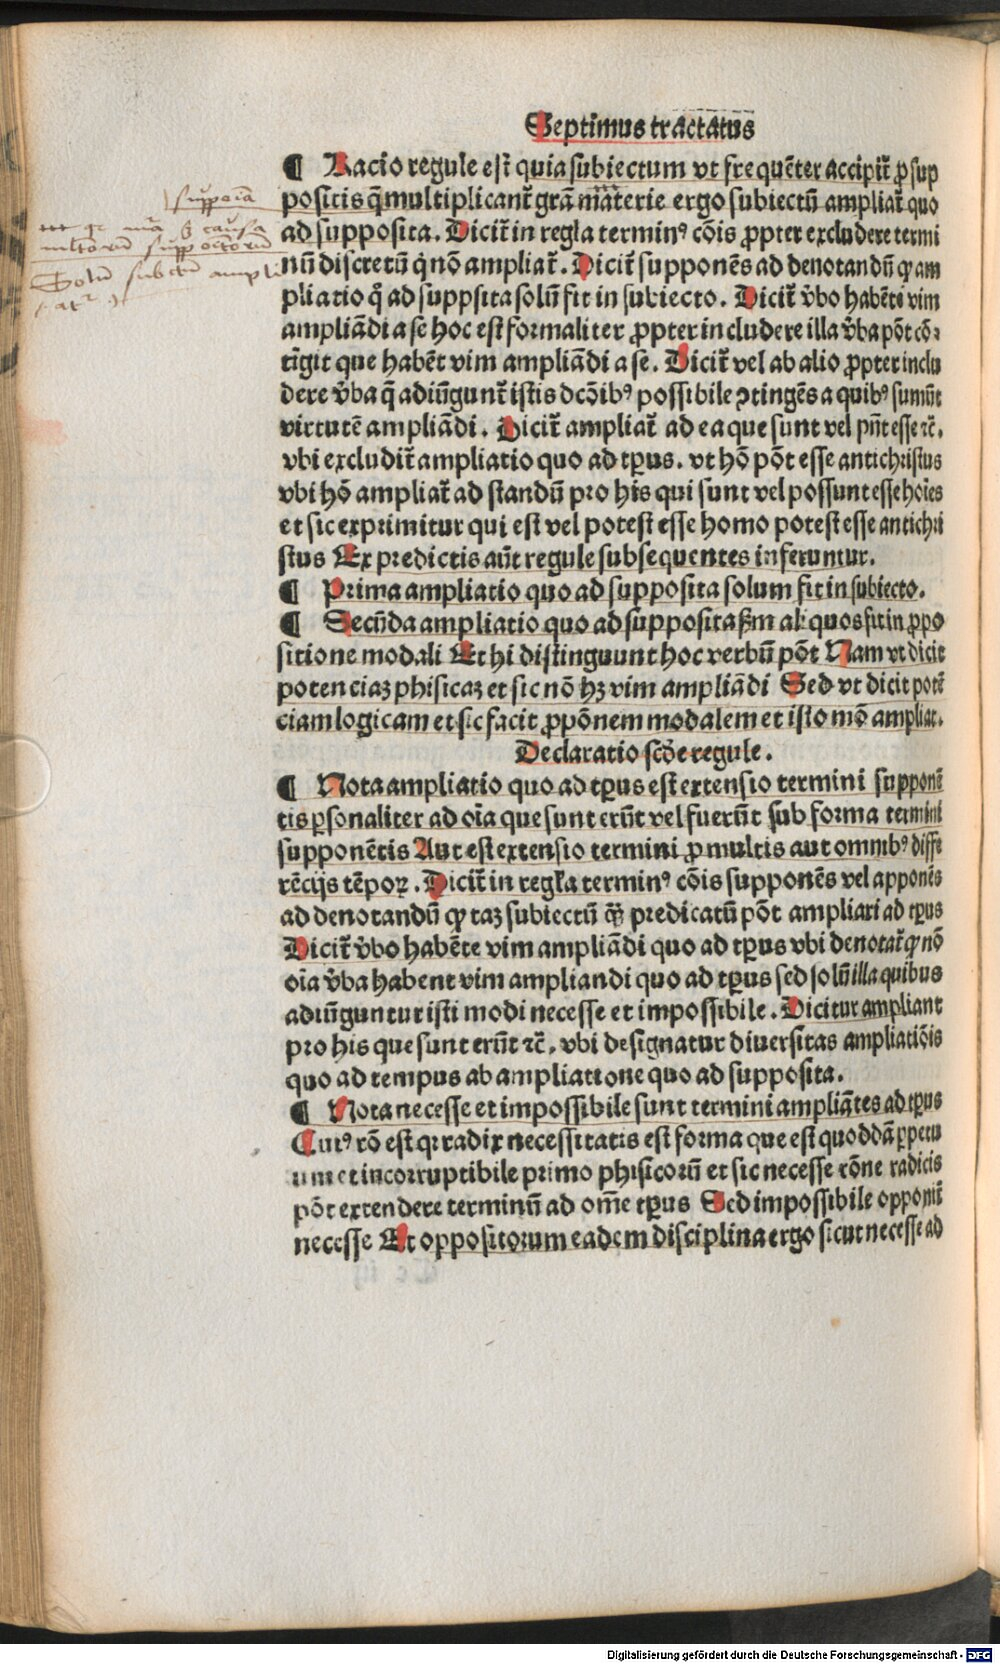 Septimus tractatus
¶ Racio regule est quia subiectum vt frequēter accipit᷑ ꝓ sup
positis q̄ multiplicant᷑ grā materie ergo subiectū ampliat᷑ quo
ad supposita. Dicit᷑ in regla terminꝰ cōis ꝓpter excludere termi
nū discretū q̇ nō ampliat᷑. Dicit᷑ supponēs ad denotandū ꝙ am
pliatio q̊ ad suppsita solū fit in subiecto. Dicit᷑ v̄bo habēti vim
ampliādi a se hoc est formaliter ꝓpter includere illa v̄ba pōt cō⸗
tīgit que habēt vim ampliādi a se. Dicit᷑ vel ab alio ꝓpter inclu
dere v̄ba q̄ adiūgunt᷑ istis dcōibꝰ possibile ꝯtingēs a quibꝰ sumūt
virtutē ampliādi. Dicit᷑ ampliat᷑ ad ea que sunt vel pn̄t esse ⁊c̄.
vbi excludit᷑ ampliatio quo ad tp̄us. vt hō pōt esse antichristus
vbi hō ampliat᷑ ad standū pro his qui sunt vel possunt esse hoīes
et sic exprimitur qui est vel potest esse homo potest esse antichri
stus Ex predictis aūt regule subsequentes inferuntur.
¶ Prima ampliatio quo ad supposita solum fit in subiecto.
¶ Secūda ampliatio quo ad supposita ẜm aliquos fit in ꝓpo
sitione modali Et hi distinguunt hoc verbū pōt Nam vt dicit
potenciaꝫ phisicaꝫ et sic nō hꝫ vim ampliādi Sed vt dicit potē
ciam logicam et sic facit ꝓpōnem modalem et isto mō ampliat.
Declaratio scd̄e regule.
¶ Nota ampliatio quo ad tp̄us est extensio termini supponē
tis ꝑsonaliter ad oīa que sunt erūt vel fuerūt sub forma termini
supponētis Aut est extensio termini ꝓ multis aut omnibꝰ diffe
rēcijs tēpoꝝ. Dicit᷑ in regła terminꝰ cōis supponēs vel apponēs
ad denotandū ꝙ taꝫ subiectū ꝙ̄ predicatū pōt ampliari ad tp̄us
Dicit᷑ v̄bo habēte vim ampliādi quo ad tp̄us vbi denotat᷑ ꝙ nō
oīa v̄ba habent vim ampliandi quo ad tp̄us sed solū illa quibus
adiūguntur isti modi necesse et impossibile. Dicitur ampliant
pro his que sunt erūt ⁊c̄. vbi designatur diuersitas ampliatiōis
quo ad tempus ab ampliatione quo ad supposita.
¶ Nota necesse et impossibile sunt termini ampliātes ad tp̄us
Cuiꝰ rō est qꝛ radix necessitatis est forma que est quoddā ꝑpetu
um et incorruptibile primo phisicorū et sic necesse rōne radicis
pōt extendere terminū ad om̄e tp̄us Sed impossibile opponit᷑
necesse Et oppositorum eadem disciplina ergo sicut necesse ad
Solū subctū ampli
at᷑
Digitalisierung gefördert durch die Deutsche Forschungsgemeinschaft - DFG